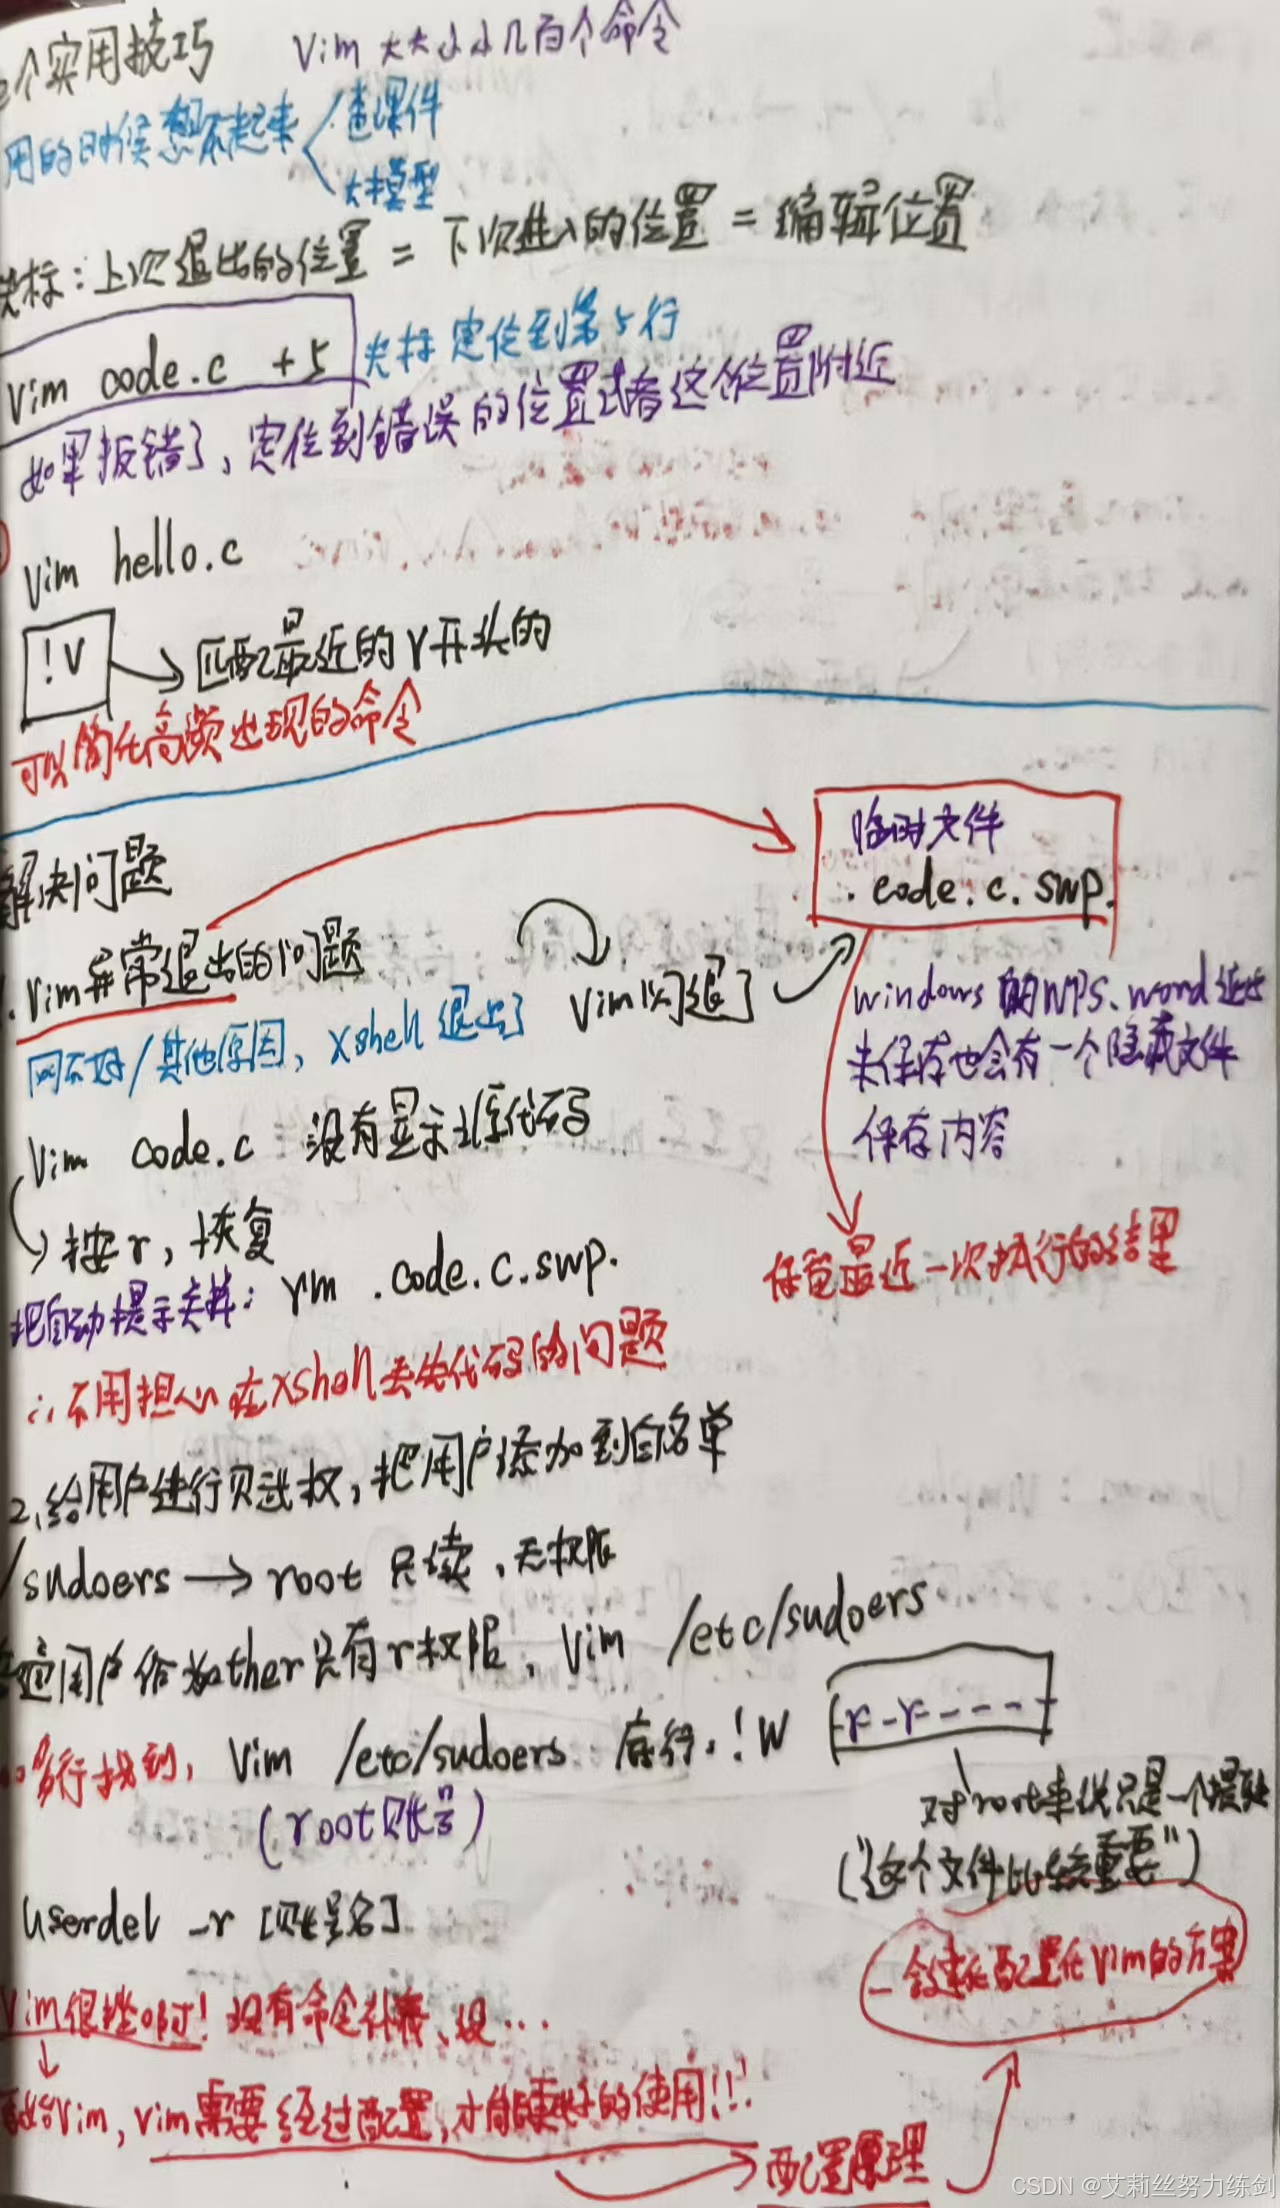 个实用技巧 Vim 大大小小几百个命令
用的时候想不起来 查课件
大模型
光标：上次退出的位置 = 下次进入的位置 = 编辑位置
vim code.c +5 光标定位到第5行
如果报错了，定位到错误的位置或者这个位置附近
vim hello.c
!v → 匹配最近的v开头的
可以简化高频出现的命令
解决问题
临时文件
.code.c.swp.
1.vim异常退出的问题
vim闪退了
网不好/其他原因，xshell退出了
windows的WPS、word退出
未保存也会有一个隐藏文件
保存内容
vim code.c 没有显示源代码
按r，恢复
保留最近一次执行的结果
把自动提示关掉：rm .code.c.swp.
∴不用担心在xshell丢失代码的问题
2、给用户进行赋权，把用户添加到白名单
/sudoers → root 只读，无权限
普通用户作为other只有r权限，vim /etc/sudoers
多行找到，vim /etc/sudoers 底行.!w -r--r-----
(root账号)
对root来说只是一个提醒
("这个文件比较重要")
userdel -r [账号名]
一会直接配置化vim的方案
vim很挫啊！没有命令补齐、没...
vim，vim需要经过配置，才能更好的使用!!!
配置原理
CSDN @艾莉丝努力练剑